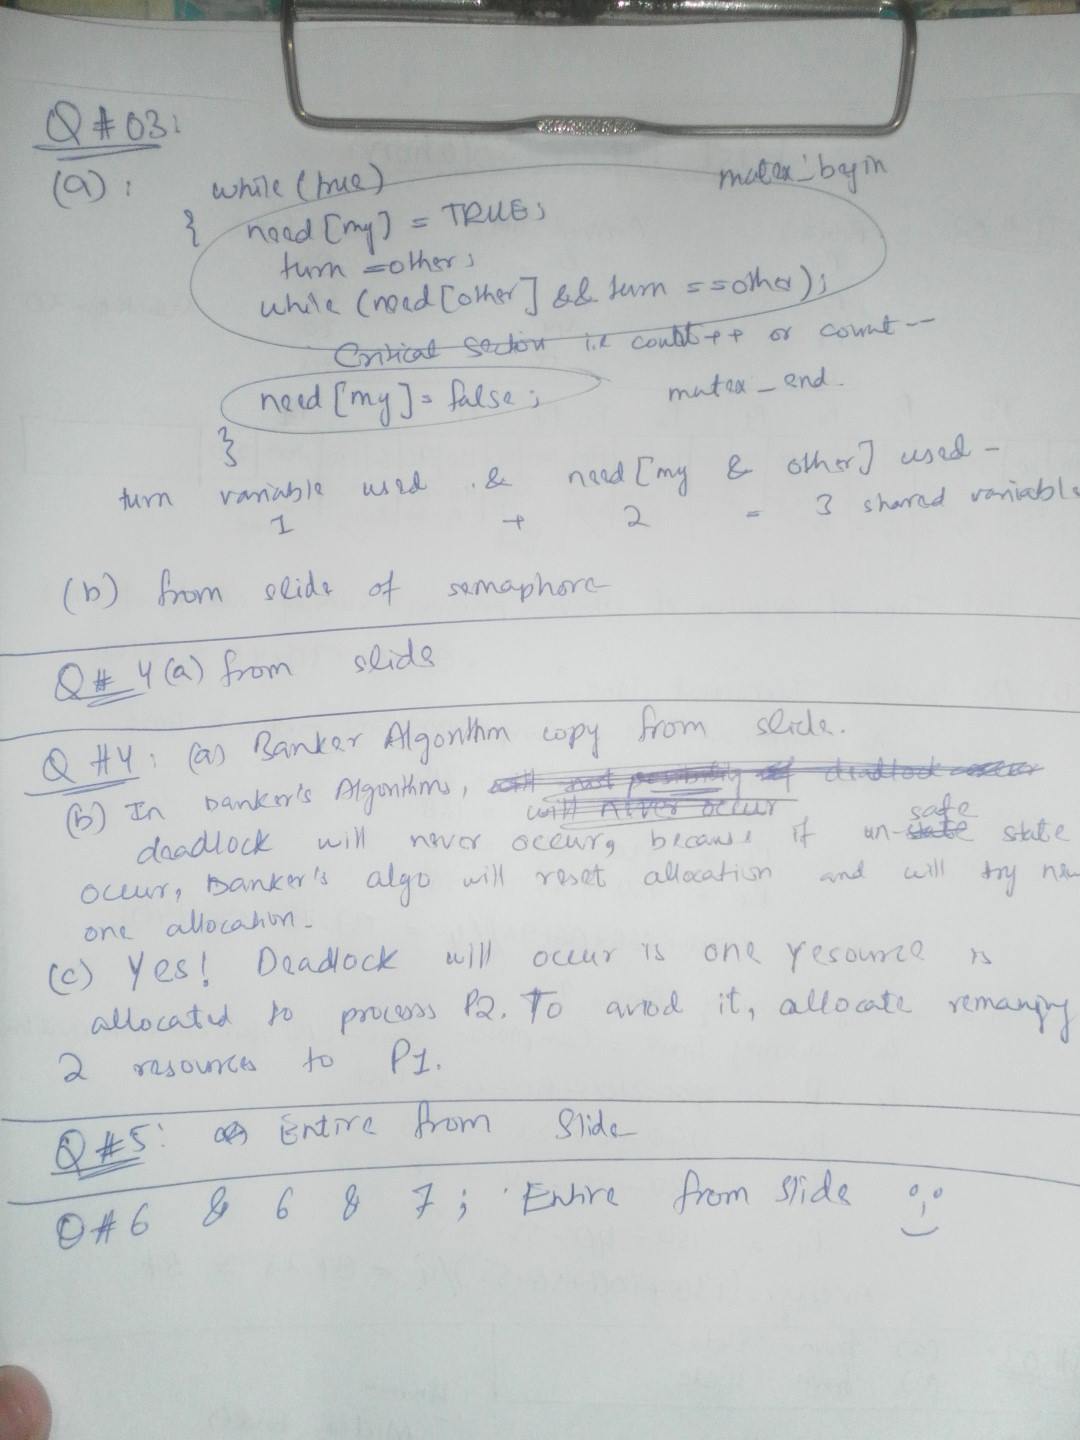 Q # 03:
(a): while (true) mutex_begin
{ need [my] = TRUE;
turn = other;
while (need [other] && turn == other);
Critical Section i.e count++ or count--
need [my] = false; mutex_end.
}
turn variable used & need [my & other] used -
1 + 2 = 3 shared variable
(b) from slide of semaphore
Q # 4 (a) from slide
Q #4: (a) Banker Algorithm copy from slide.
(b) In Banker's Algorithms,
will never occur safe
deadlock will never occur, because if un- state
occur, Banker's algo will reset allocation and will try new
one allocation.
(c) Yes! Deadlock will occur is one resource is
allocated to process P2. To aviod it, allocate remaning
2 resources to P1.
Q #5: Entire from Slide
Q # 6 & 6 & 7; Entire from slide